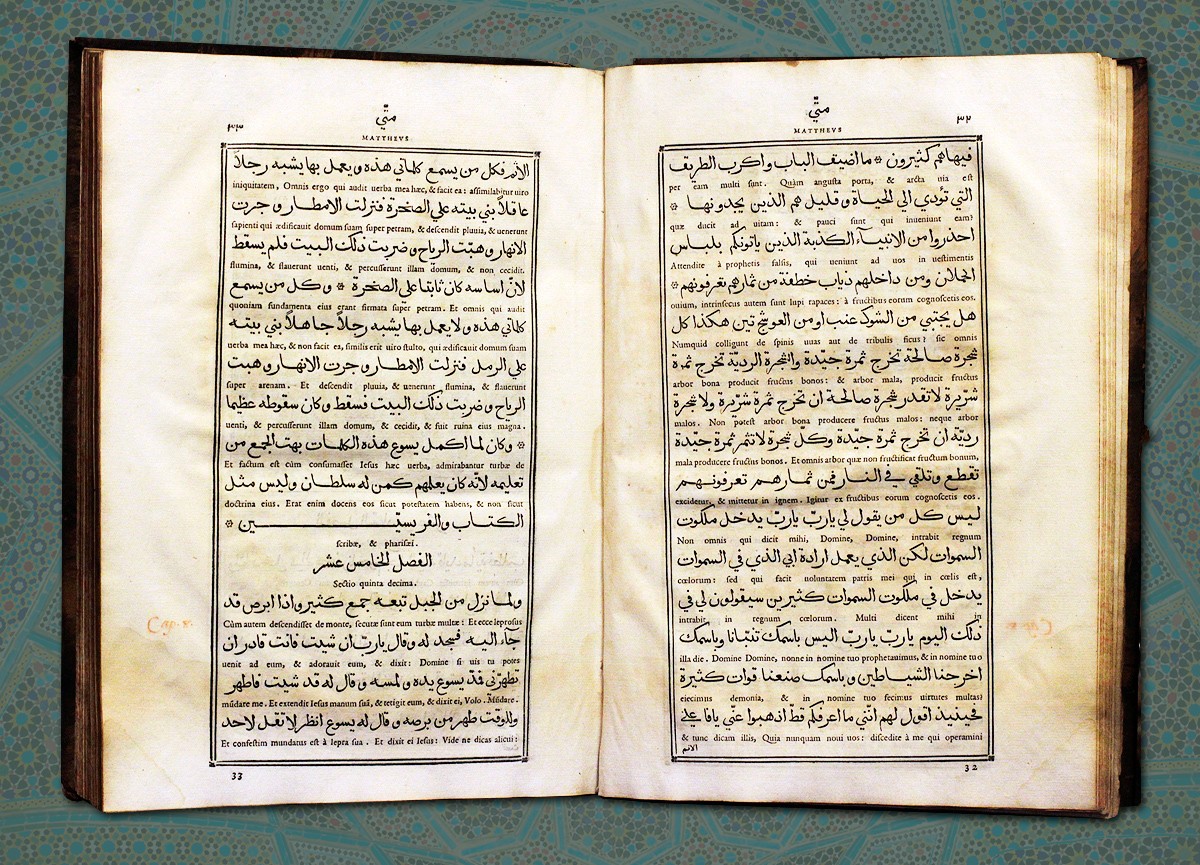 متّي
٣٢
MATTHEVS
فيها هم كثيرون ۞ ما اضيف الباب واكرب الطريف
per eam multi sunt. Quàm angusta porta, & arcta uia est
التي تؤدي الي الحياة وقليل هم الذين يجدونها ۞
quæ ducit ad uitam: & pauci sunt qui inueniunt eam?
احذروا من الانبيآء الكذبة الذين ياتونكم بلباس
Attendite à prophetis falsis, qui ueniunt ad uos in uestimentis
الحملان ومن داخلهم ذياب خطفة من ثمارهم تعرفونهم ۞
ouium, intrinsecus autem sunt lupi rapaces: à fructibus eorum cognoscetis eos.
هل يجتبي من الشوك عنب او من العوشج تين هكذا كل
Numquid colligunt de spinis uuas aut de tribulis ficus? sic omnis
شجرة صالحة تخرج ثمرة جيّدة والشجرة الرديّة تخرج ثمرة
arbor bona producit fructus bonos: & arbor mala, producit fructus
شرّيرة لا تقدر شجرة صالحة ان تخرج ثمرة شرّيرة ولا شجرة
malos. Non potest arbor bona producere fructus malos: neque arbor
رديّة ان تخرج ثمرة جيّدة وكلّ شجرة لا تثمر ثمرة جيّدة
mala producere fructus bonos. Et omnis arbor quæ non fructificat fructum bonum,
تقطع وتلقي في النار فمن ثمارهم تعرفونهم
excidetur, & mittetur in ignem. Igitur ex fructibus eorum cognoscetis eos.
ليس كل من يقول لي ياربّ ياربّ يدخل ملكوت
Non omnis qui dicit mihi, Domine, Domine, intrabit regnum
السموات لكن الذي يعمل ارادة ابي الذي في السموات
cœlorum: sed qui facit voluntatem patris mei qui in cœlis est,
يدخل في ملكوت السموات كثيرين سيقولون لي في
intrabit in regnum cœlorum. Multi dicent mihi in
ذلك اليوم ياربّ ياربّ اليس باسمك تنبّانا وباسمك
illa die. Domine Domine, nonne in nomine tuo prophetauimus, & in nomine tuo
اخرجنا الشياطين وباسمك صنعنا قوات كثيرة
eiecimus demonia, & in nomine tuo fecimus uirtutes multas?
فحينيذ اقول لهم انّني ما اعرفكم قطّ اذهبوا عنّي يافاعلي
& tunc dicam illis, Quia nunquam noui uos: discedite à me qui operamini
الاثم
32
متّي
٣٣
MATTHEVS
الاثم فكل من يسمع كلماتي هذه ويعمل بها يشبه رجلاً
iniquitatem, Omnis ergo qui audit uerba mea hæc, & facit ea: assimilabitur uiro
عاقلاً بني بيته علي الصخرة فنزلت الامطار وجرت
sapienti qui ædificauit domum suam super petram, & descendit pluuia, & uenerunt
الانهار وهبّت الرياح وضربت ذلك البيت فلم يسقط
flumina, & flauerunt uenti, & percusserunt illam domum, & non cecidit.
لانّ اساسه كان ثابتا علي الصخرة ۞ وكل من يسمع
quoniam fundamenta eius erant firmata super petram. Et omnis qui audit
كلماتي هذه ولا يعمل بها يشبه رجلاً جاهلاً بني بيته
uerba mea hæc, & non facit ea, similis erit uiro stulto, qui ædificauit domum suam
علي الرمل فنزلت الامطار وجرت الانهار وهبت
super arenam. Et descendit pluuia, & uenerunt flumina, & flauerunt
الرياح وضربت ذلك البيت فسقط وكان سقوطه عظيما
uenti, & percusserunt illam domum, & cecidit, & fuit ruina eius magna.
۞ وكان لما اكمل يسوع هذه الكلمات بهت الجمع من
Et factum est cùm consumasset Iesus hæc uerba, admirabantur turbæ de
تعليمه لانّه كان يعلمهم كمن له سلطان وليس مثل
doctrina eius. Erat enim docens eos sicut potestatem habens, & non sicut
الكتاب والفريسيّين ۞
scribæ, & pharisæi.
الفصل الخامس عشر
Sectio quinta decima.
ولما نزل من الجبل تبعه جمع كثير واذا ابرص قد
Cùm autem descendisset de monte, secutæ sunt eum turbæ multæ: Et ecce leprosus
جآء اليه فسجد له وقال ياربّ ان شيت فانت قادر ان
uenit ad eum, & adorauit eum, & dixit: Domine si uis tu potes
تطهرني فمدّ يسوع يده ولمسه وقال له قد شيت فاطهر
mūdare me. Et extendit Iesus manum suā, & tetigit eum, & dixit ei, Volo. Mūdare.
وللوقت طهر من برصه وقال له يسوع انظر لا تقل لاحد
Et confestim mundatus est à lepra sua. Et dixit ei Iesus: Vide ne dicas alicui:
Cap. 8.
33